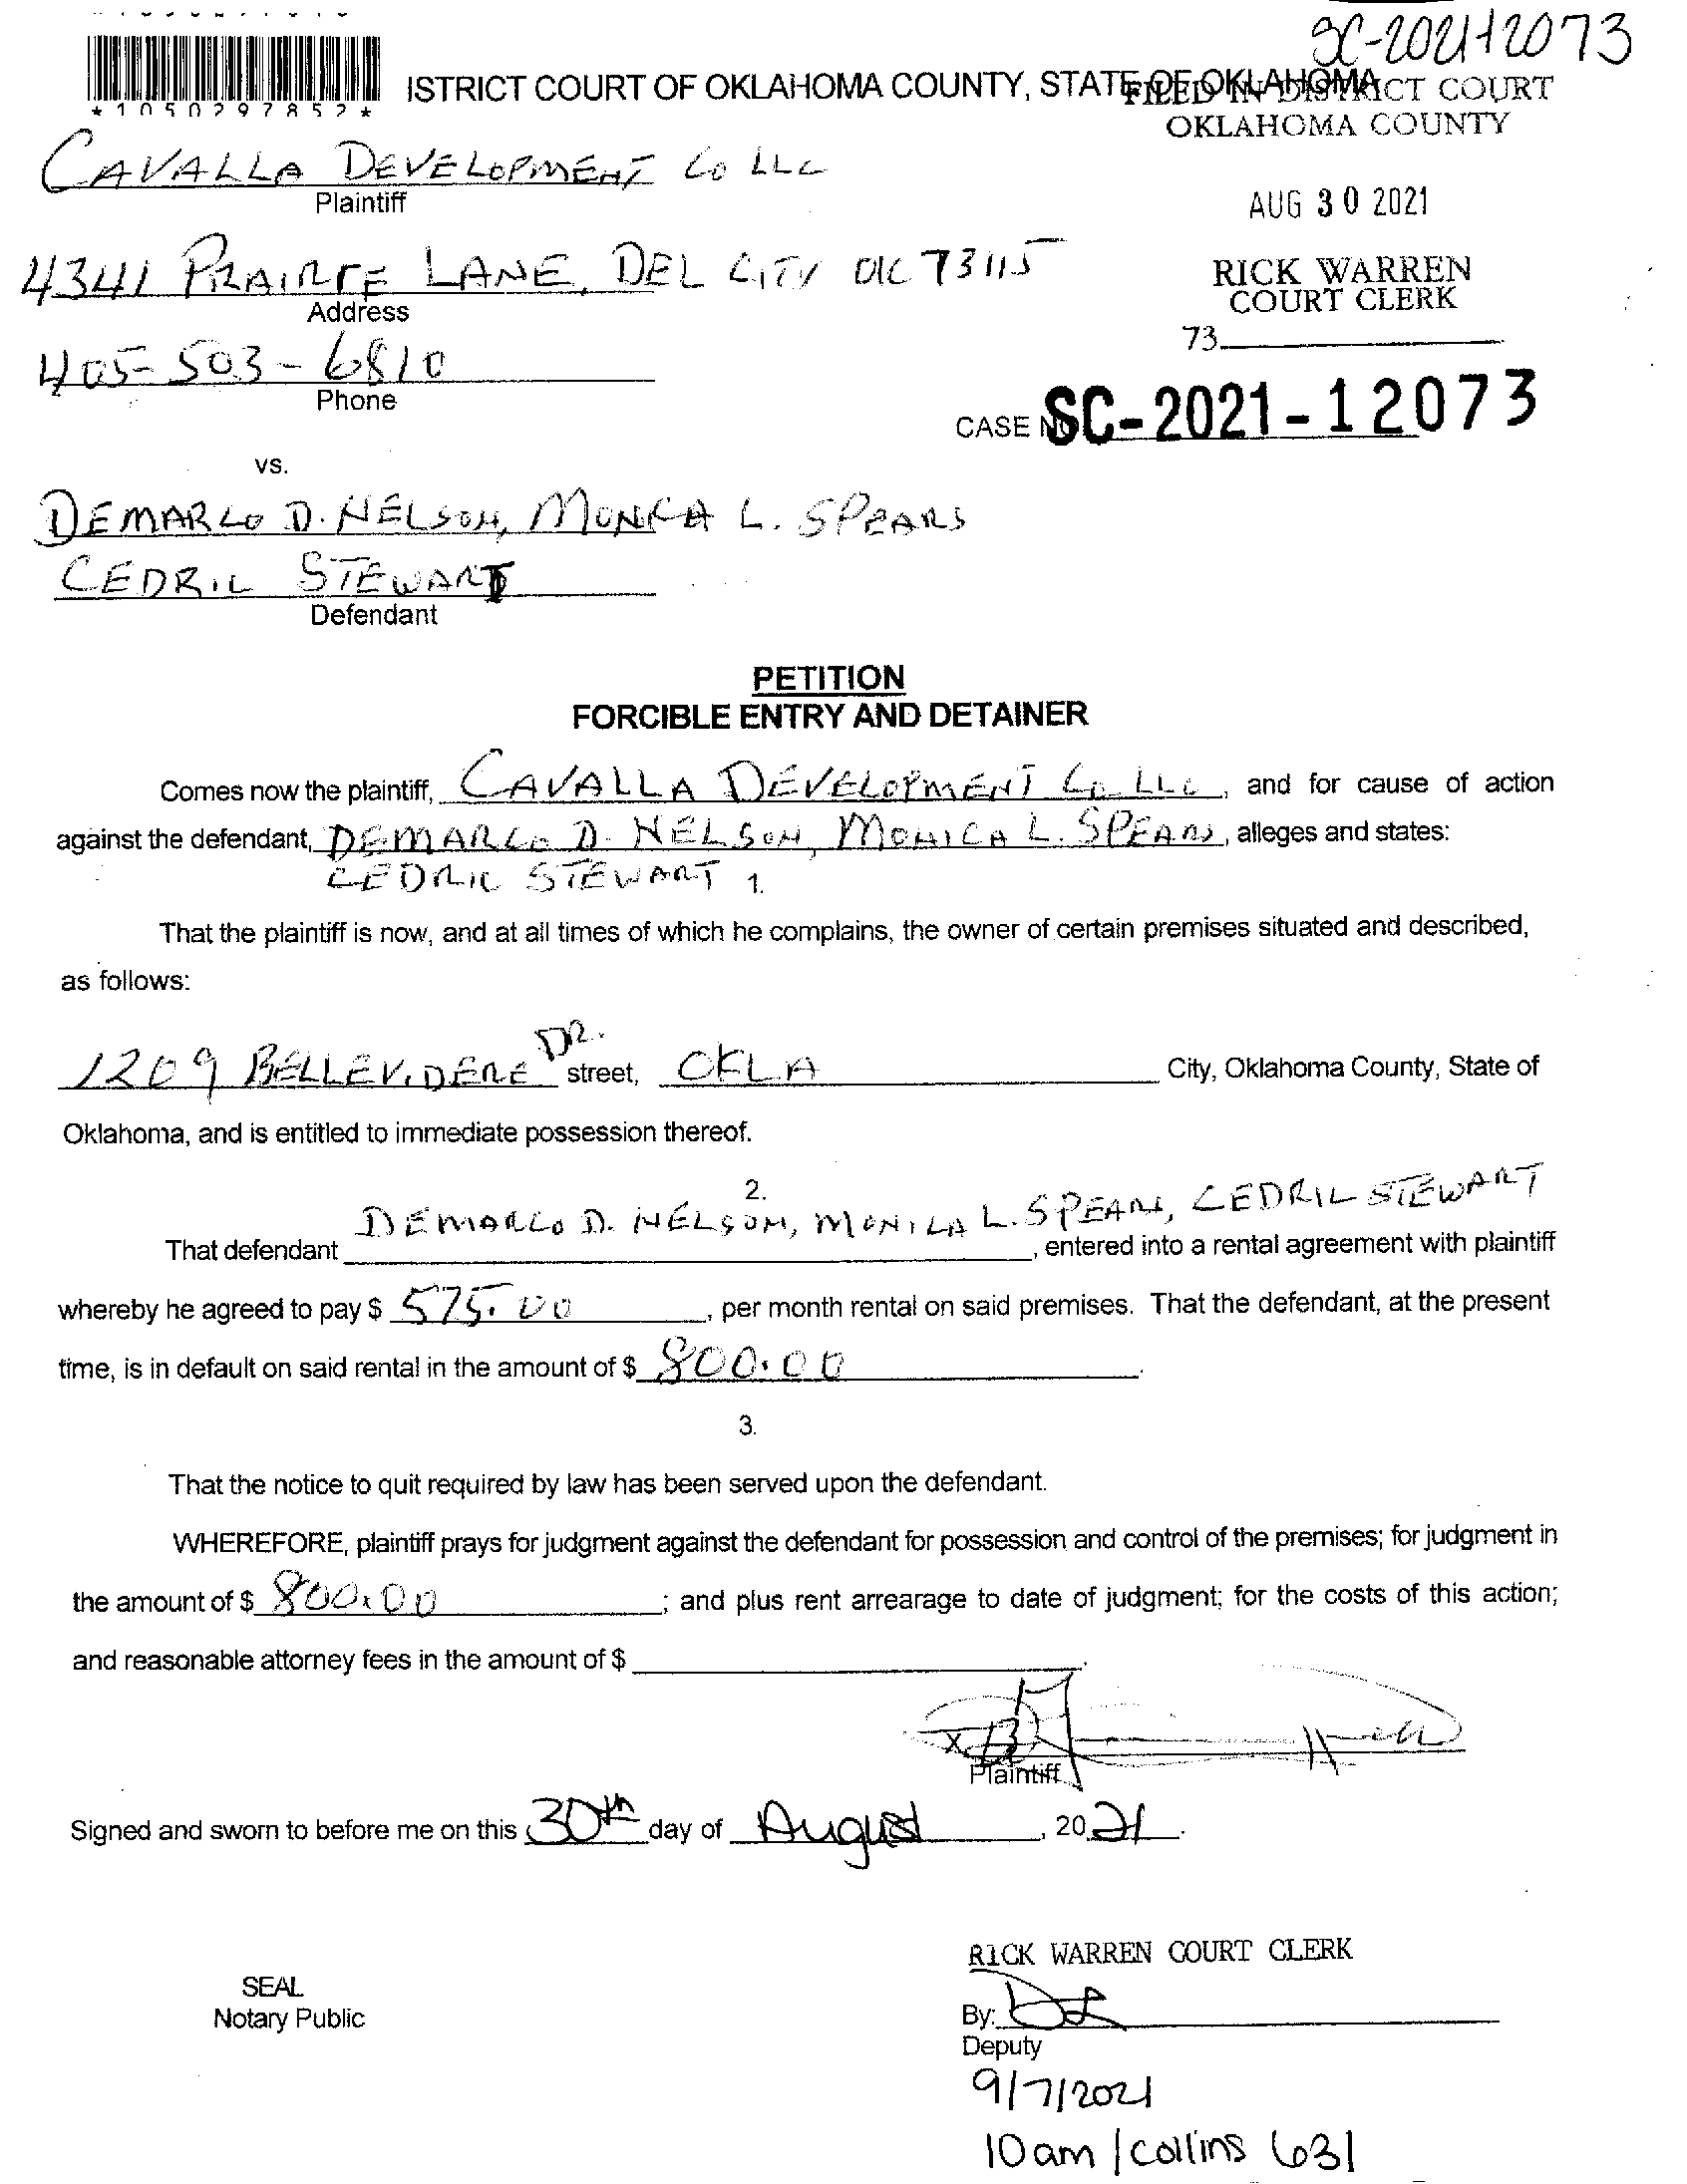 SC-2021-12073
*1050297852*
ISTRICT COURT OF OKLAHOMA COUNTY, STATE OF OKLAHOMA
FILED IN DISTRICT COURT
OKLAHOMA COUNTY
CAVALLA DEVELOPMENT CO LLC
Plaintiff
AUG 30 2021
4341 PRAIRIE LANE, DEL CITY OK 73115
Address
RICK WARREN
COURT CLERK
73
405-503-6810
Phone
CASE NO SC-2021-12073
vs.
DEMARCO D. NELSON, MONICA L. SPEARS
CEDRIC STEWART
Defendant
PETITION
FORCIBLE ENTRY AND DETAINER
Comes now the plaintiff, CAVALLA DEVELOPMENT CO LLC, and for cause of action
against the defendant, DEMARCO D. NELSON, MONICA L. SPEARS, alleges and states:
CEDRIC STEWART 1.
That the plaintiff is now, and at all times of which he complains, the owner of certain premises situated and described,
as follows:
1209 BELLEVIDERE DR. street, OKLA City, Oklahoma County, State of
Oklahoma, and is entitled to immediate possession thereof.
2.
DEMARCO D. NELSON, MONICA L. SPEARS, CEDRIC STEWART
That defendant , entered into a rental agreement with plaintiff
whereby he agreed to pay $ 575.00, per month rental on said premises. That the defendant, at the present
time, is in default on said rental in the amount of $ 800.00.
3.
That the notice to quit required by law has been served upon the defendant.
WHEREFORE, plaintiff prays for judgment against the defendant for possession and control of the premises; for judgment in
the amount of $ 800.00; and plus rent arrearage to date of judgment; for the costs of this action;
and reasonable attorney fees in the amount of $ .
X
Plaintiff
Signed and sworn to before me on this 30th day of August, 2021.
RICK WARREN COURT CLERK
SEAL
Notary Public
By:
Deputy
9/7/2021
10am / Collins 631